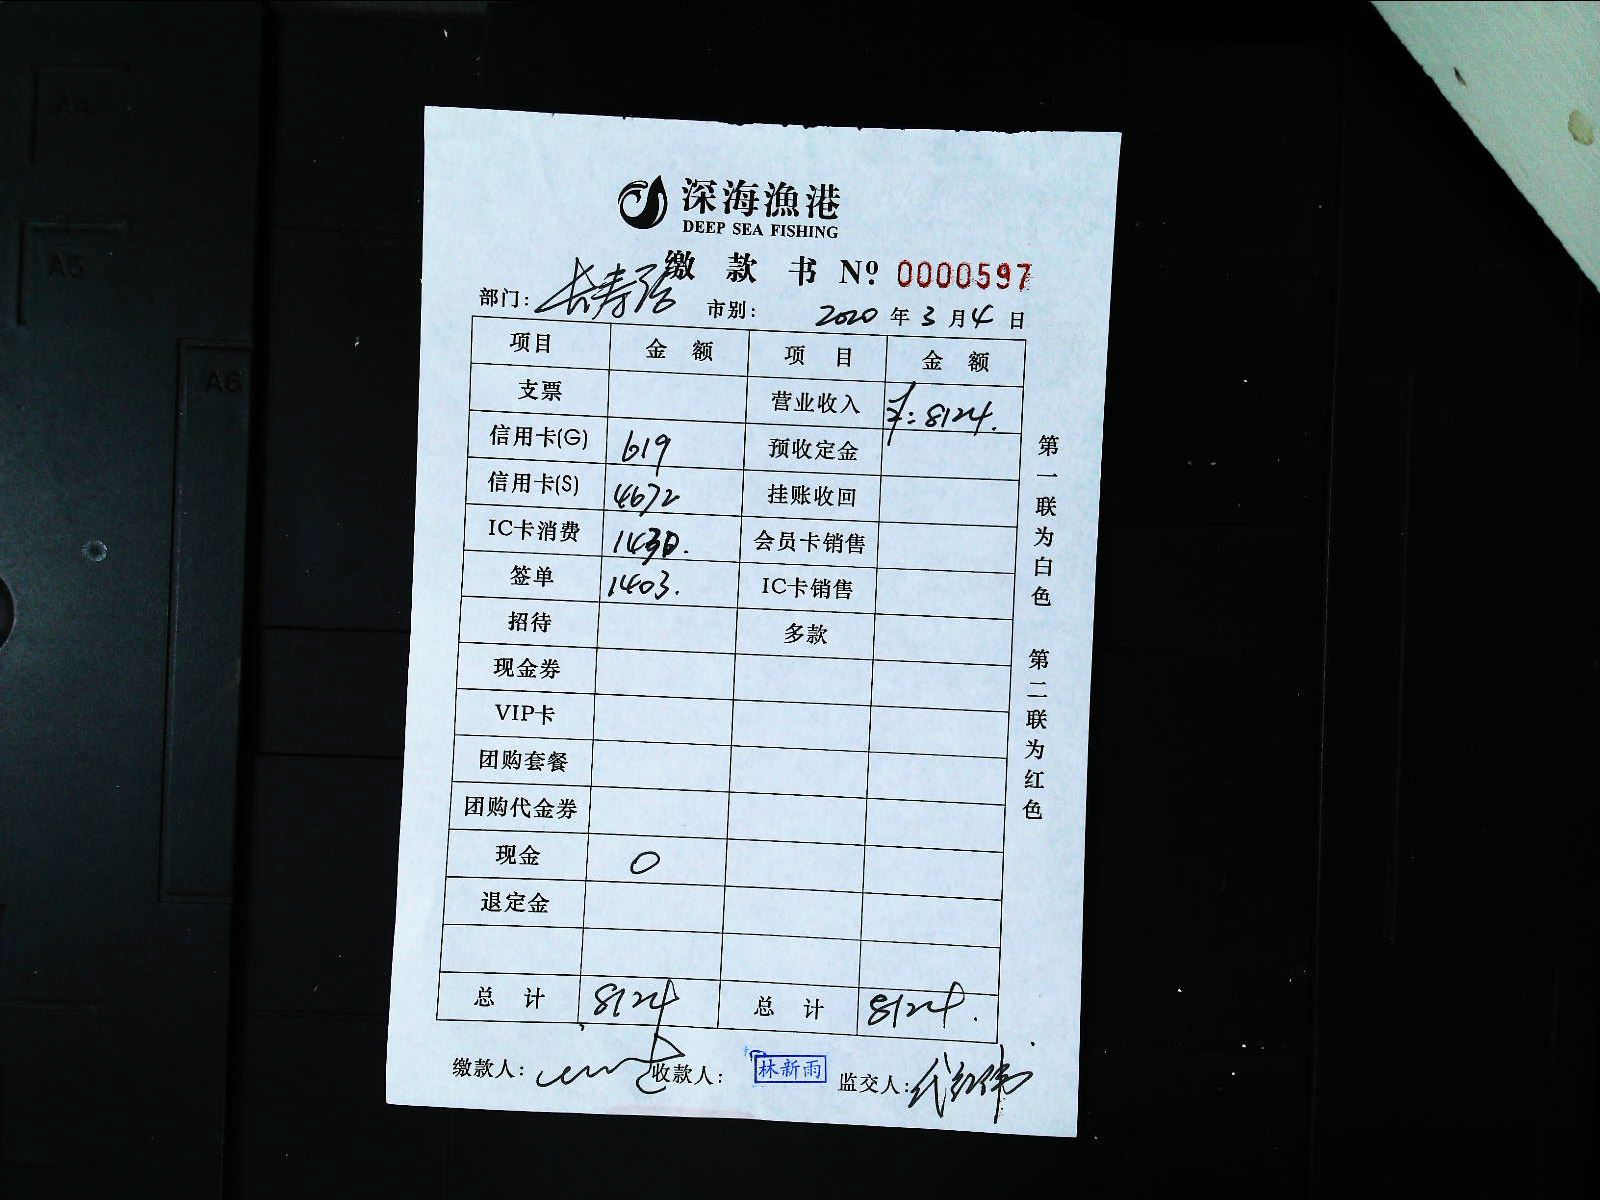 A4
A5
A6
深海漁港
DEEP SEA FISHING
缴款书 Nº 0000597
部门: 长寿路 市别: 2020年3月4日
项目 金额 项目 金额
支票 营业收入 8124.
信用卡(G) 619 预收定金
信用卡(S) 4672 挂账收回
IC卡消费 1430. 会员卡销售
签单 1403. IC卡销售
招待 多款
现金券
VIP卡
团购套餐
团购代金券
现金 0
退定金
总计 8124 总计 8124.
缴款人: 收款人: 林新雨 监交人:
第一联为白色 第二联为红色